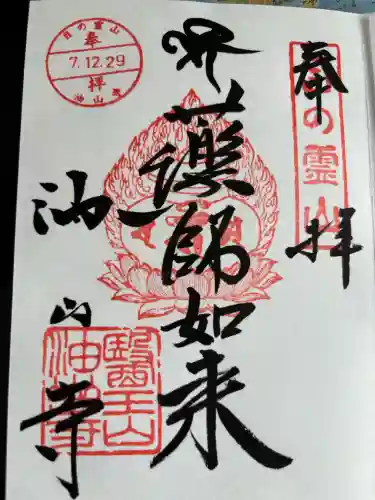 奉拝
目の霊山
薬師如来
油山寺
目の霊山
奉
7.12.29
拝
油山寺
醫王山
油山寺